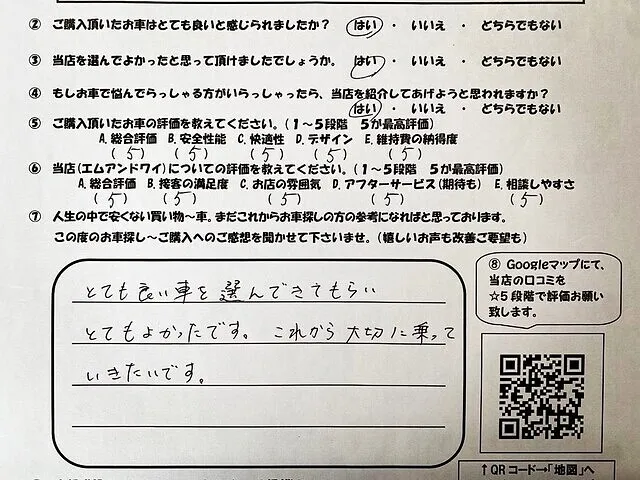 ② ご購入頂いたお車はとても良いと感じられましたか? はい ・ いいえ ・ どちらでもない
③ 当店を選んでよかったと思って頂けましたでしょうか。 はい ・ いいえ ・ どちらでもない
④ もしお車で悩んでらっしゃる方がいらっしゃったら、当店を紹介してあげようと思われますか?
はい ・ いいえ ・ どちらでもない
⑤ ご購入頂いたお車の評価を教えてください。(1〜5段階 5が最高評価)
A. 総合評価 B. 安全性能 C. 快適性 D. デザイン E. 維持費の納得度
(5) (5) (5) (5) (5)
⑥ 当店(エムアンドワイ)についての評価を教えてください。(1〜5段階 5が最高評価)
A. 総合評価 B. 接客の満足度 C. お店の雰囲気 D. アフターサービス(期待も) E. 相談しやすさ
(5) (5) (5) (5) (5)
⑦ 人生の中で安くない買い物〜車。まだこれからお車探しの方の参考になればと思っております。
この度のお車探し〜ご購入へのご感想を聞かせて下さいませ。(嬉しいお声も改善ご要望も)
とても良い車を選んできてもらい
とてもよかったです。これから大切に乗って
いきたいです。
⑧ Googleマップにて、
当店の口コミを
☆5段階で評価お願い
致します。
↑QRコード→「地図」へ